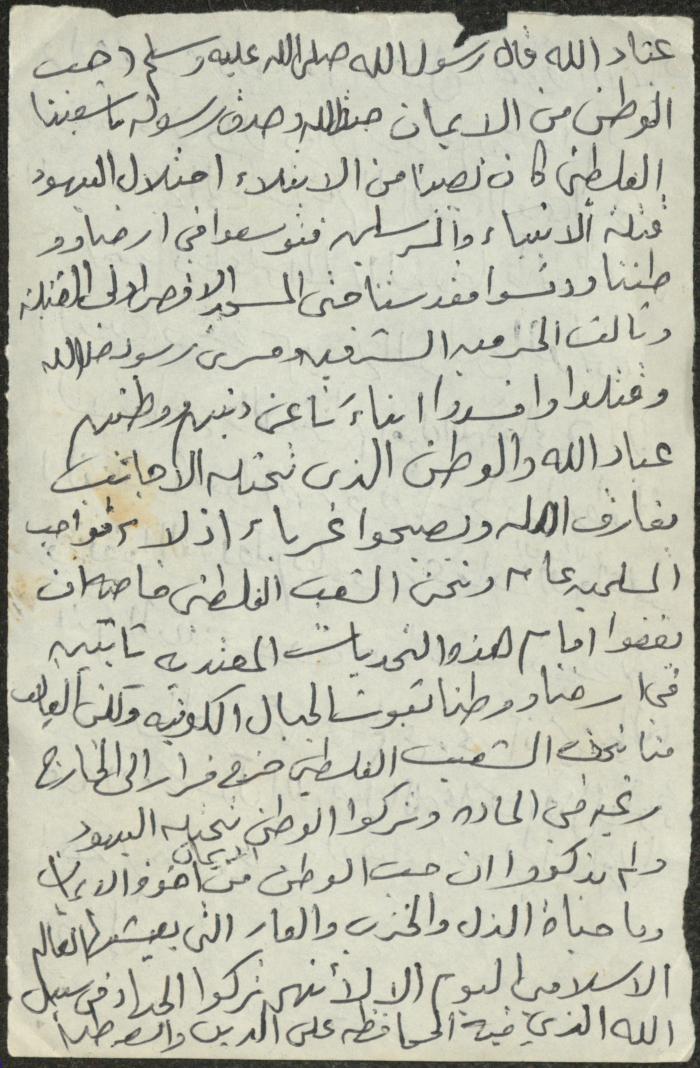 عباد الله قال رسول الله صلى الله عليه وسلم (حب
الوطن من الايمان صدق الله وصدق رسوله يا شعبنا
الفلطني كان نصيبنا من الابتلاء احتلال اليهود
قتلة الانبياء والمرسلين فتوسعوا في ارضنا وو
طننا ودنسوا مقدستنا حتى المسجد الاقصى اولى القبلتين
وثالث الحرمين الشرفين ومسرى رسول الله
وقتلوا وافسدوا ابناءنا عن دينهم ووطنهم
عباد الله والوطن الذي تحتله الاجانب
يفارق اهله ويصبحوا غرباء اذلاء فواجب
المسلمين عامه ونحن الشعب الفلطني خاصه ان
يقفوا امام هذه التحديات المعتديه ثابتين
في ارضنا ووطنا ثبوت الجبال الكونيه ولكن
منا نحن الشعب الفلطني خرج فرارا الى الخارج
رغبه في الماده وتركوا الوطن تحتله اليهود
ولم يذكروا ان حب الوطن من الايمان
وما حياة الذل والخزي والعار التي يعيشها العالم
الاسلامي اليوم الا لأنهم تركوا الجهاد في سبيل
الله الذي فيه المحافظه على الدين والوطن